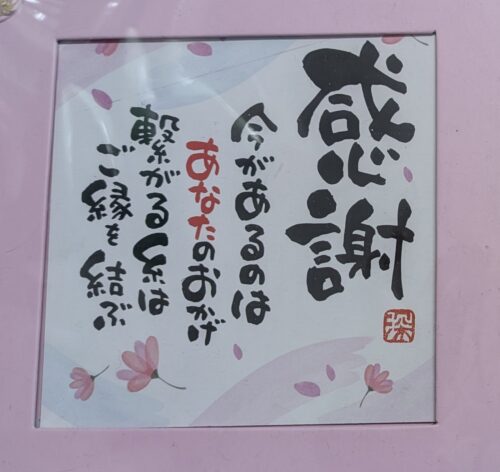 感謝
今があるのは
あなたのおかげ
繋がる糸は
ご縁を結ぶ